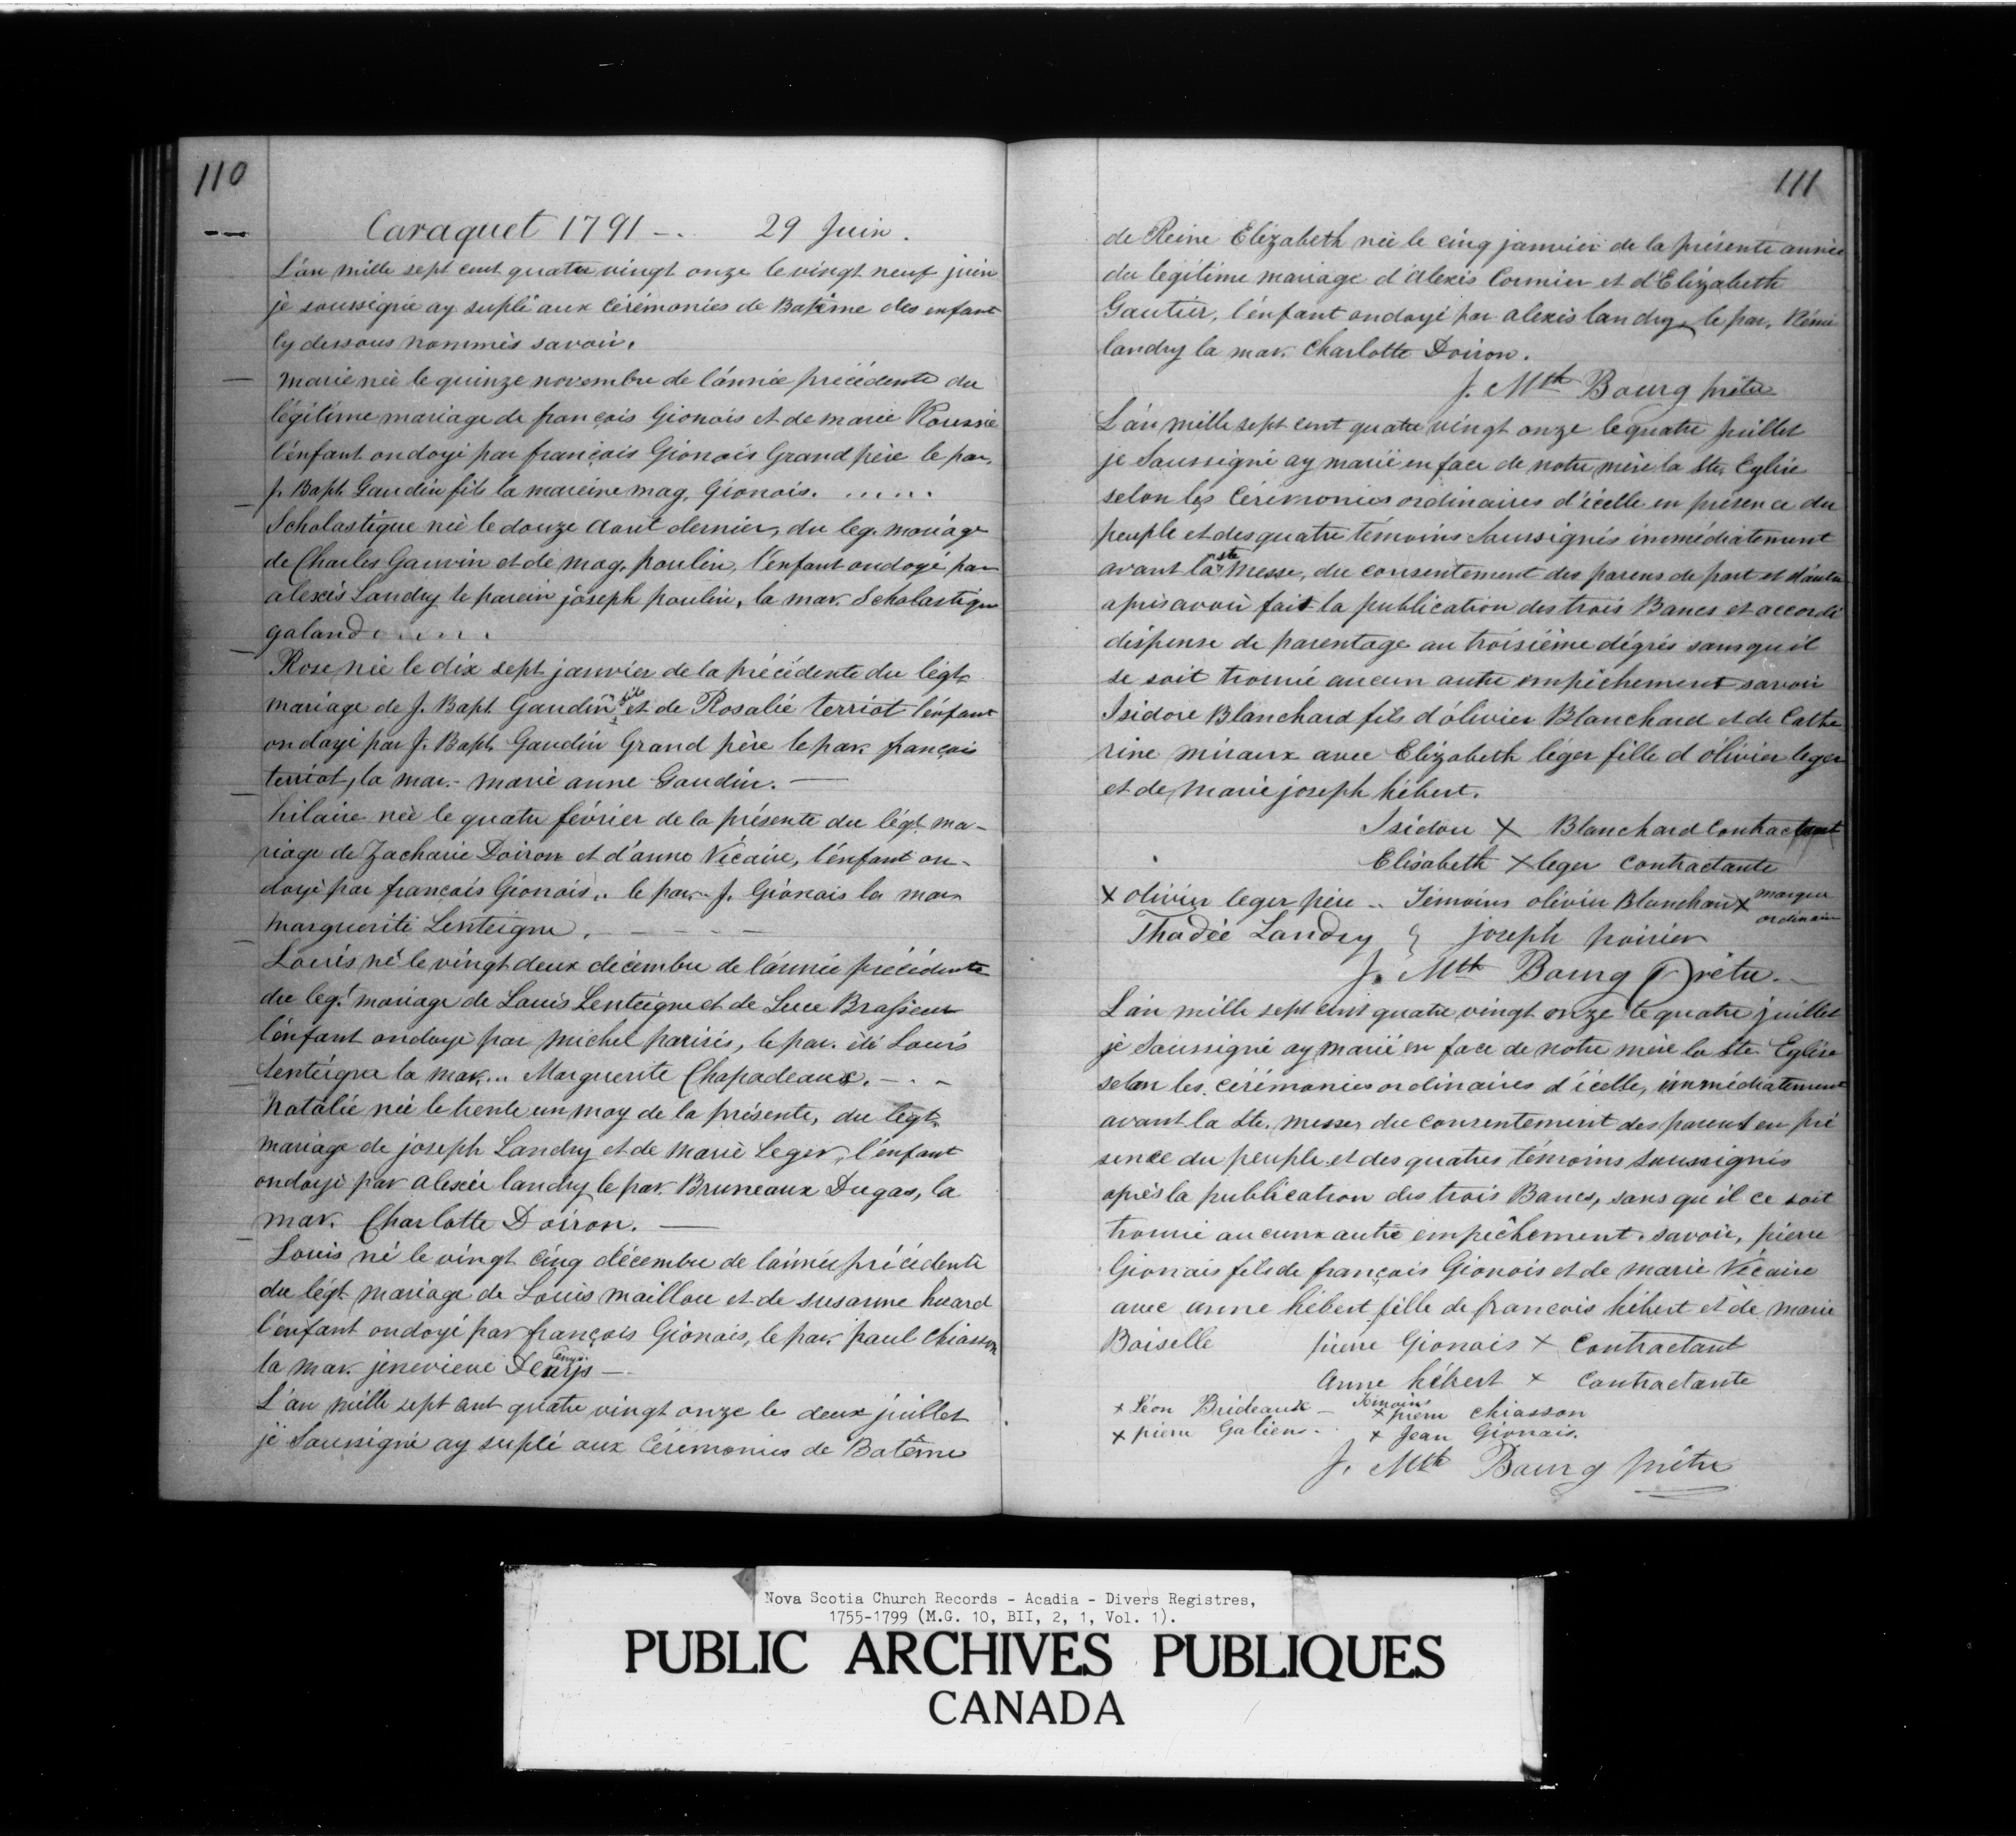 110
Caraquet 1791 -. 29 Juin.
L'an mille sept cent quatre vingt onze le vingt neuf juin
je soussigné ay suplé aux cérémonies de Batême des enfant
cy dessous nommés savoir.
marie née le quinze novembre de l'année précédente du
légitime mariage de françois Gionais et de marie Roussie
l'enfant ondoyé par françois Gionais Grand père le par.
J. Bapt. Gaudin fils la mareine mag. Gionois. .....
Scholastique née le douze aout dernier, du leg. mariage
de Charles Gauvin et de mag. poulin, l'enfant ondoyé par
alexis Landry le parein joseph poulin, la mar. Scholastique
galand . . . . .
Rose née le dix sept janvier de la précédente du légt.
mariage de J. Bapt. Gaudin fils et de Rosalie terriot l'enfant
ondoyé par J. Bapt. Gaudin Grand père le par. françois
terriot, la mar.- marie anne Gaudin. —
hilaire née le quatre février de la présente du légt. ma-
riage de Zacharie Doiron et d'anne Vécaire, l'enfant on-
doyé par françois Gionois.. le par.- J. Gionais la mar
marguerite Lenteigne. - - - - -
Louis né le vingt deux décembre de l'année précédente
du leg.t mariage de Louis Lenteigne et de Luce Brasseur
l'enfant ondoyé par michel parisis, le par. été Louis
Lenteigne la mar... Marguerite Chapadeaux. - . -
Natalie née le trente un may de la présente, du legt.
mariage de joseph Landry et de marie Leger, l'enfant
ondoyé par alexis landry le par. Bruneaux Dugas, la
mar. Charlotte Doiron. —
Louis né le vingt cinq décembre de l'année précédente
du légt. mariage de Louis maillou et de susanne huard
l'enfant ondoyé par françois Gionais, le par. paul Chiasson
la mar. jenevieve Denys —
L'an mille sept cent quatre vingt onze le deux juillet
je Soussigné ay suplé aux Cérémonies de Batême
111
de Reine Elizabeth née le cinq janvier de la présente année
du légitime mariage d'alexis Cormier et d'Elizabeth
Gautier, l'enfant ondoyé par alexis landry, le par. Rémi
landry la mar. Charlotte Doiron.
J. Mth Bourg prêtre
L'an mille sept cent quatre vingt onze le quatre juillet
je Soussigné ay marié en face de notre mère la Ste. Eglise
selon les Cérémonies ordinaires d'icelle en présence du
peuple et des quatre témoins Soussignés immédiatement
avant la ste messe, du consentement des parens de part et d'autre
après avoir fait la publication des trois Bancs et accordé
dispense de parentage au troisième dégrés sans qu'il
se soit trouvé aucun autre empêchement savoir
Isidore Blanchard fils d'olivier Blanchard et de Cathe
rine miraux avec Elizabeth léger fille d'olivier leger
et de marie joseph hébert.
Isidore X Blanchard Contractant
Elisabeth X leger Contractante
X olivier leger père .. Témoins olivier Blanchard X marque ordinaire
Thadée Landry joseph poirier
J. Mth Bourg Prêtre.
L'an mille sept cent quatre vingt onze le quatre juillet
je Soussigné ay marié en face de notre mère la Ste. Eglise
selon les cérémonies ordinaires d'icelle, immédiatement
avant la Ste. messe, du consentement des parens en pré
sence du peuple et des quatres témoins soussignés
après la publication des trois Bancs, sans qu'il ce soit
trouvé aucunx autre empêchement. savoir, pierre
Gionais fils de françois Gionois et de marie Vécaire
avec anne hébert fille de françois hébert et de marie
Boiselle pierre Gionais X Contractant
Anne hébert X Contractante
X Léon Brideaux - Témoins X pierre Chiasson
X pierre Galiens. . X Jean Gionais.
J. Mth Bourg prêtre
Nova Scotia Church Records - Acadia - Divers Registres,
1755-1799 (M.G. 10, BII, 2, 1, Vol. 1).
PUBLIC ARCHIVES PUBLIQUES
CANADA